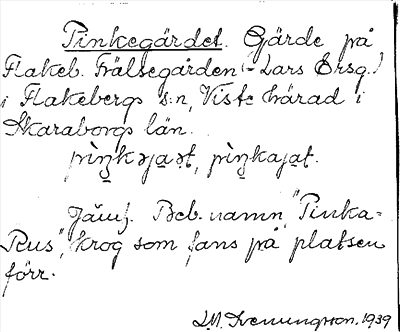 Pinkegärdet. Gärde på
Flakeb. Frälsegården (= Lars Ersg.)
i Flakebergs s:n, Viste härad i
Skaraborgs län.
Jämf. Beb. namn "Pinka-
Rus", krog som fans på platsen
förr.
1939